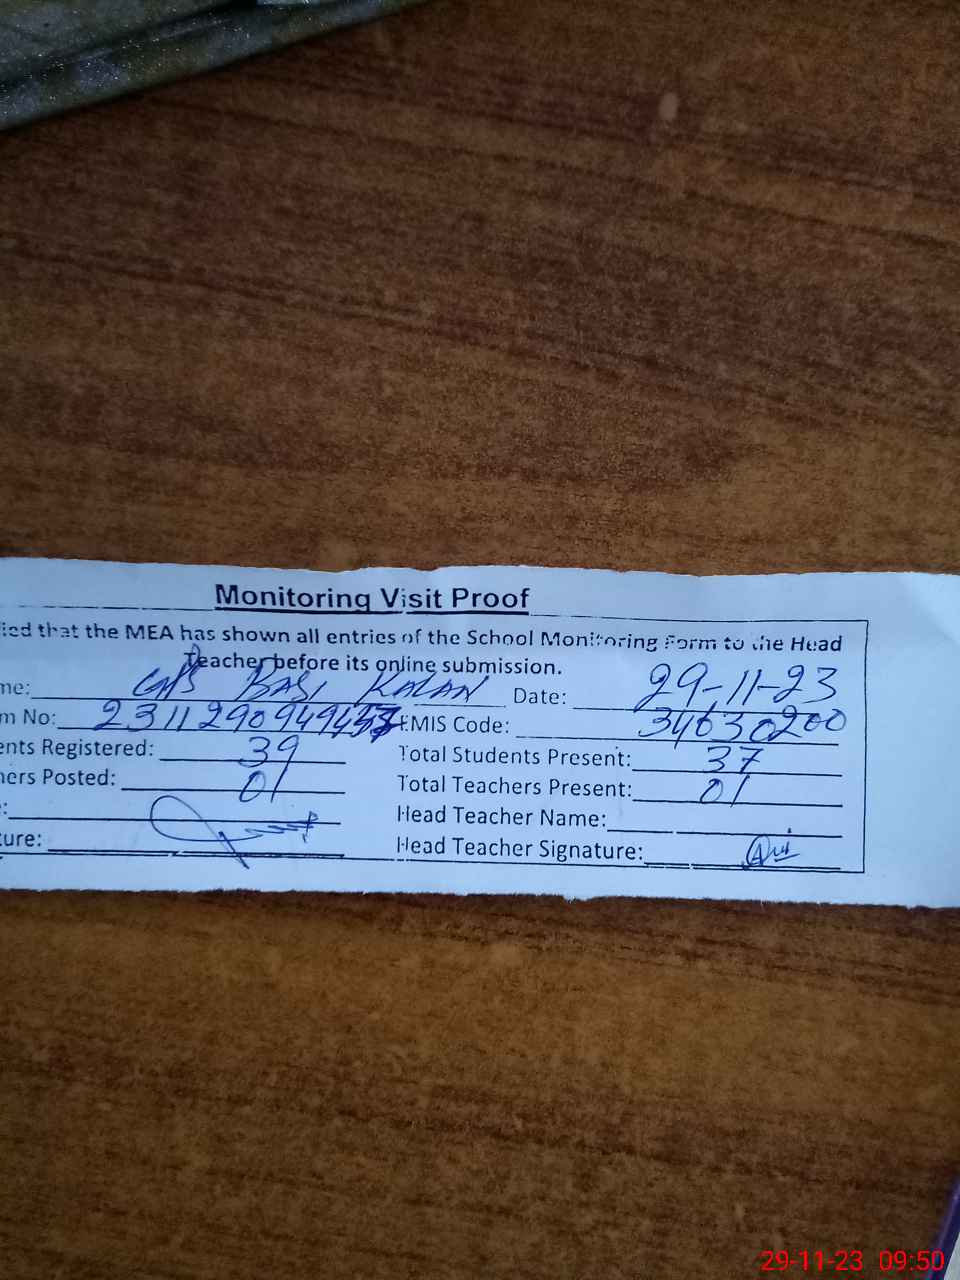 Monitoring Visit Proof
ied that the MEA has shown all entries of the School Monitoring Form to the Head
Teacher before its online submission.
me: GPS BASI KALAN Date: 29-11-23
m No: 2311290949457 EMIS Code: 34630200
ents Registered: 39 Total Students Present: 37
hers Posted: 01 Total Teachers Present: 01
: Head Teacher Name:
ure: Head Teacher Signature:
29-11-23 09:50